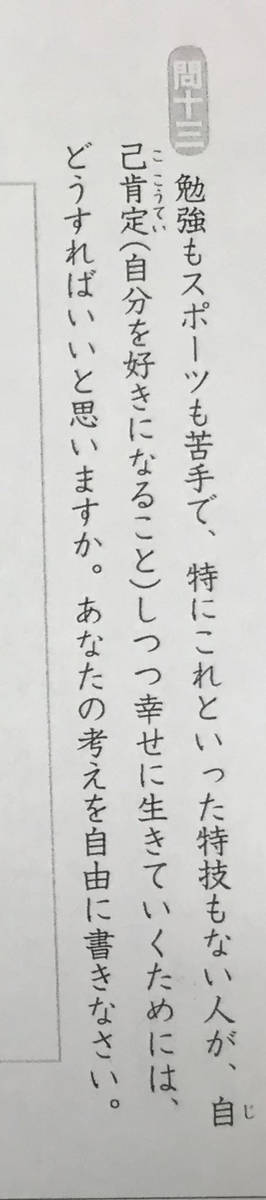 問十三
勉強もスポーツも苦手で、特にこれといった特技もない人が、自
己肯定(自分を好きになること)しつつ幸せに生きていくためには、
どうすればいいと思いますか。あなたの考えを自由に書きなさい。
じ
こ こうてい